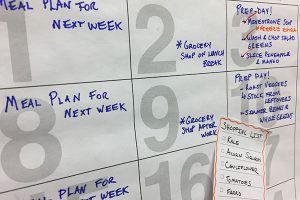 MEAL PLAN FOR
NEXT WEEK
1
2
* GROCERY
SHOP ON LUNCH
BREAK
3
PREP-DAY!
• MINESTRONE SOUP
* FREEZE EXTRA
• WASH & CHOP SALAD
GREENS
• SLICE PINEAPPLE &
MANGO
8
MEAL PLAN FOR
NEXT WEEK
9
* GROCERY
SHOP AFTER
WORK
PREP DAY!
• ROAST VEGGIES
& STOCK FROM
LEFTOVERS
• SIMMER BEANS &
WHOLE GRAINS
SHOPPING LIST
KALE
ACORN SQUASH
CAULIFLOWER
TOMATOES
FARRO
MEAL PLAN FOR
NEXT WEEK
16